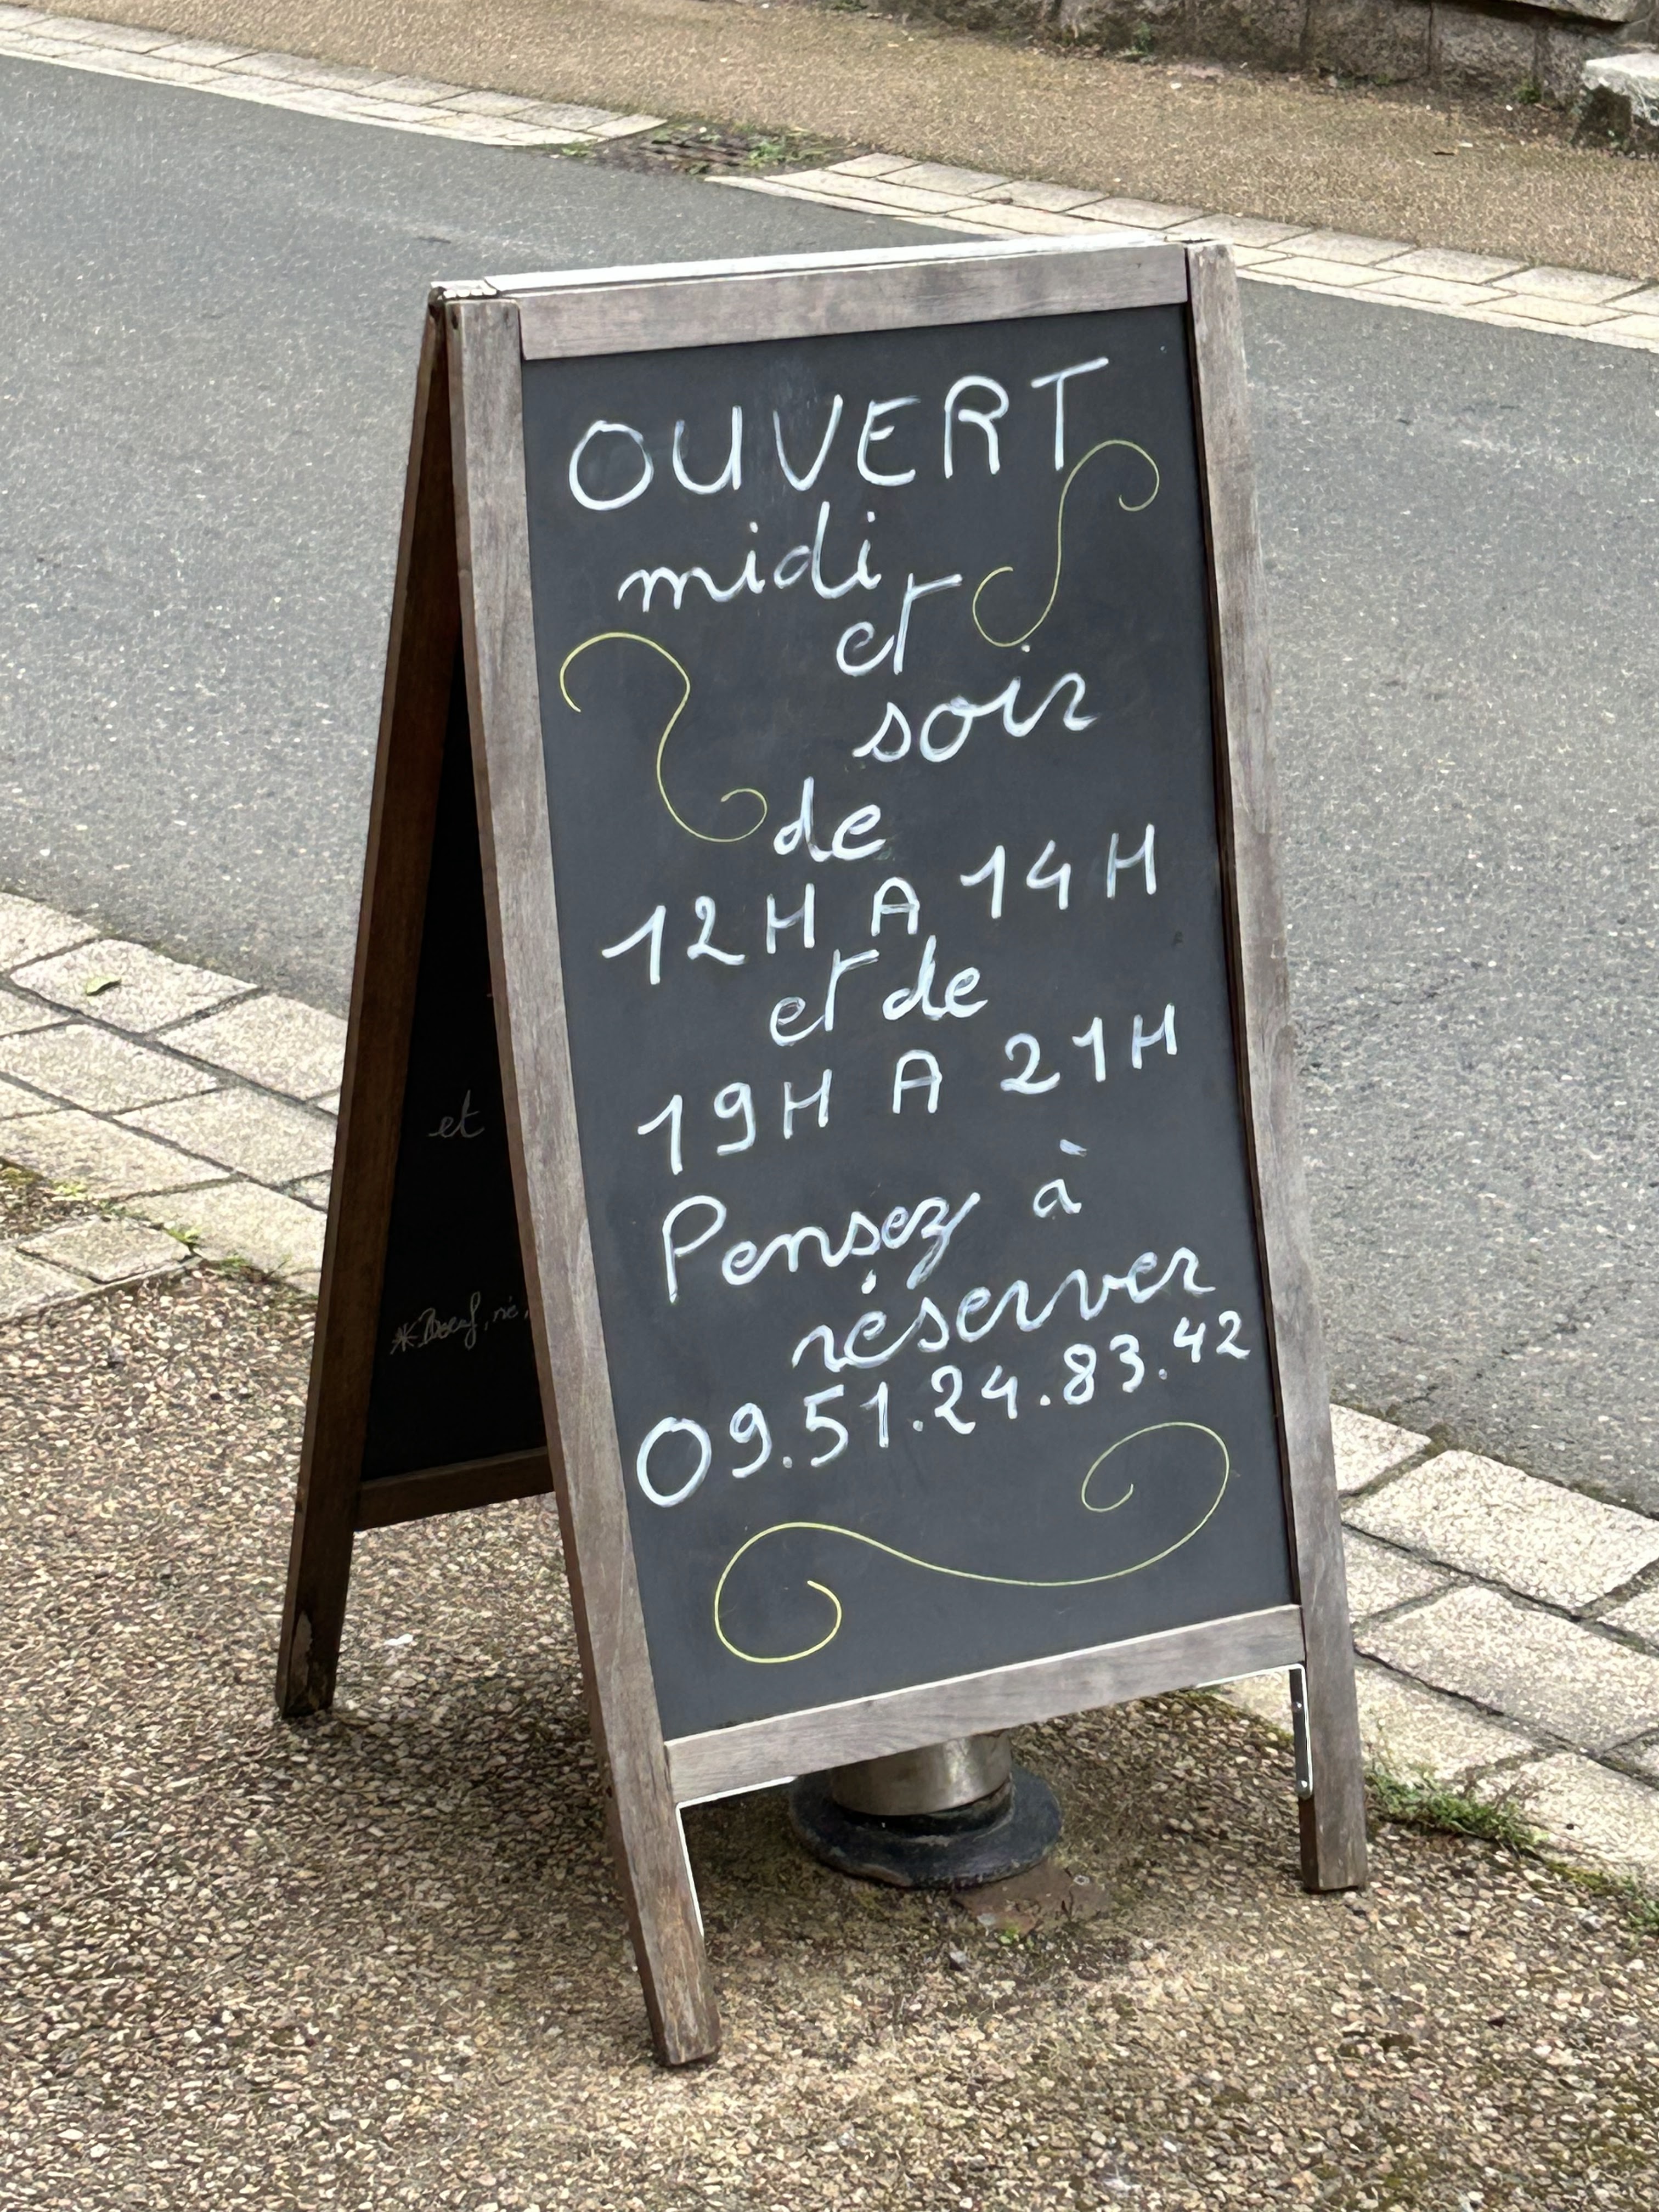 OUVERT
midi
et
soir
de
12H A 14H
et de
19H A 21H
Pensez à
réserver
09.51.24.83.42
et
*Boeuf, né,